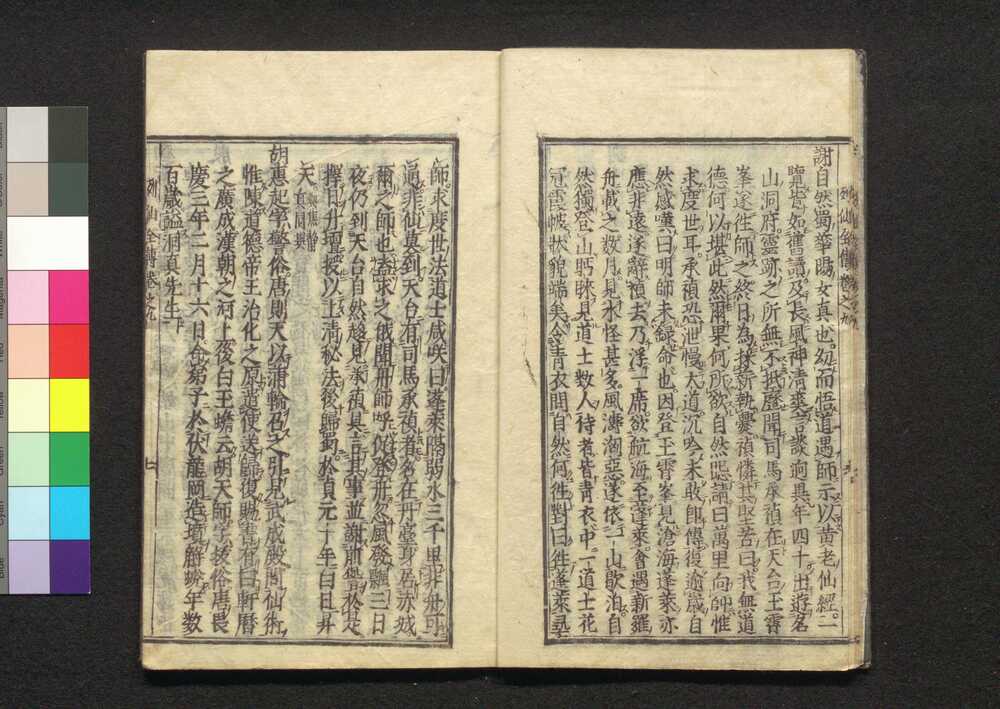 謝自然蜀華陽女真也幼而悟道遇師示以黄老仙經一
覽皆如舊讀及長風神清爽言談迥異年四十出遊名
山洞府靈跡之所無不抵歷聞司馬承禎在天台玉霄
峯遂往師之終日為採薪執爨禎憐其堅苦曰我無道
德何以堪此然爾果何所欲自然曰萬里向師惟
求度世耳承禎恐泄慢大道沉吟未敢即傳復逾歲自
然感嘆曰明師未録命也因登玉霄峯見滄海蓬萊亦
應非遠遂辭禎去乃浮一席欲航海至蓬萊會遇新羅
舟載之數月見水怪甚多風濤洶惡遂依一山歇泊自
然獨登山眺睞見道士数人侍者皆青衣中一道士花
冠霞帔状貌端美令青衣問自然何往對曰往蓬萊尋
師求度世法道士咸咲曰蓬萊隔弱水三千里非舟可
通非仙莫到天台有司馬承禎者名在丹臺身居赤城
爾之師也盍求之俄聞舟師呼自然登舟忽風發飄三日
夜仍到天台自然趨見承禎具言其事並謝前愆於是
擇日升壇授以上清秘法後歸蜀於貞元十年白日昇
天
胡惠超常警俗唐則天以蒲輪召之引見武成殿聞仙術
惟陳道德帝王治化之原遣使送歸復賜書有曰軒曆
之廣成漢朝之河上後白玉蟾云胡天師字拔俗唐長
慶三年二月十六日命弟子於伏龍岡造墳解蛻年数
百歲謚洞真先生
列仙全傳卷之九